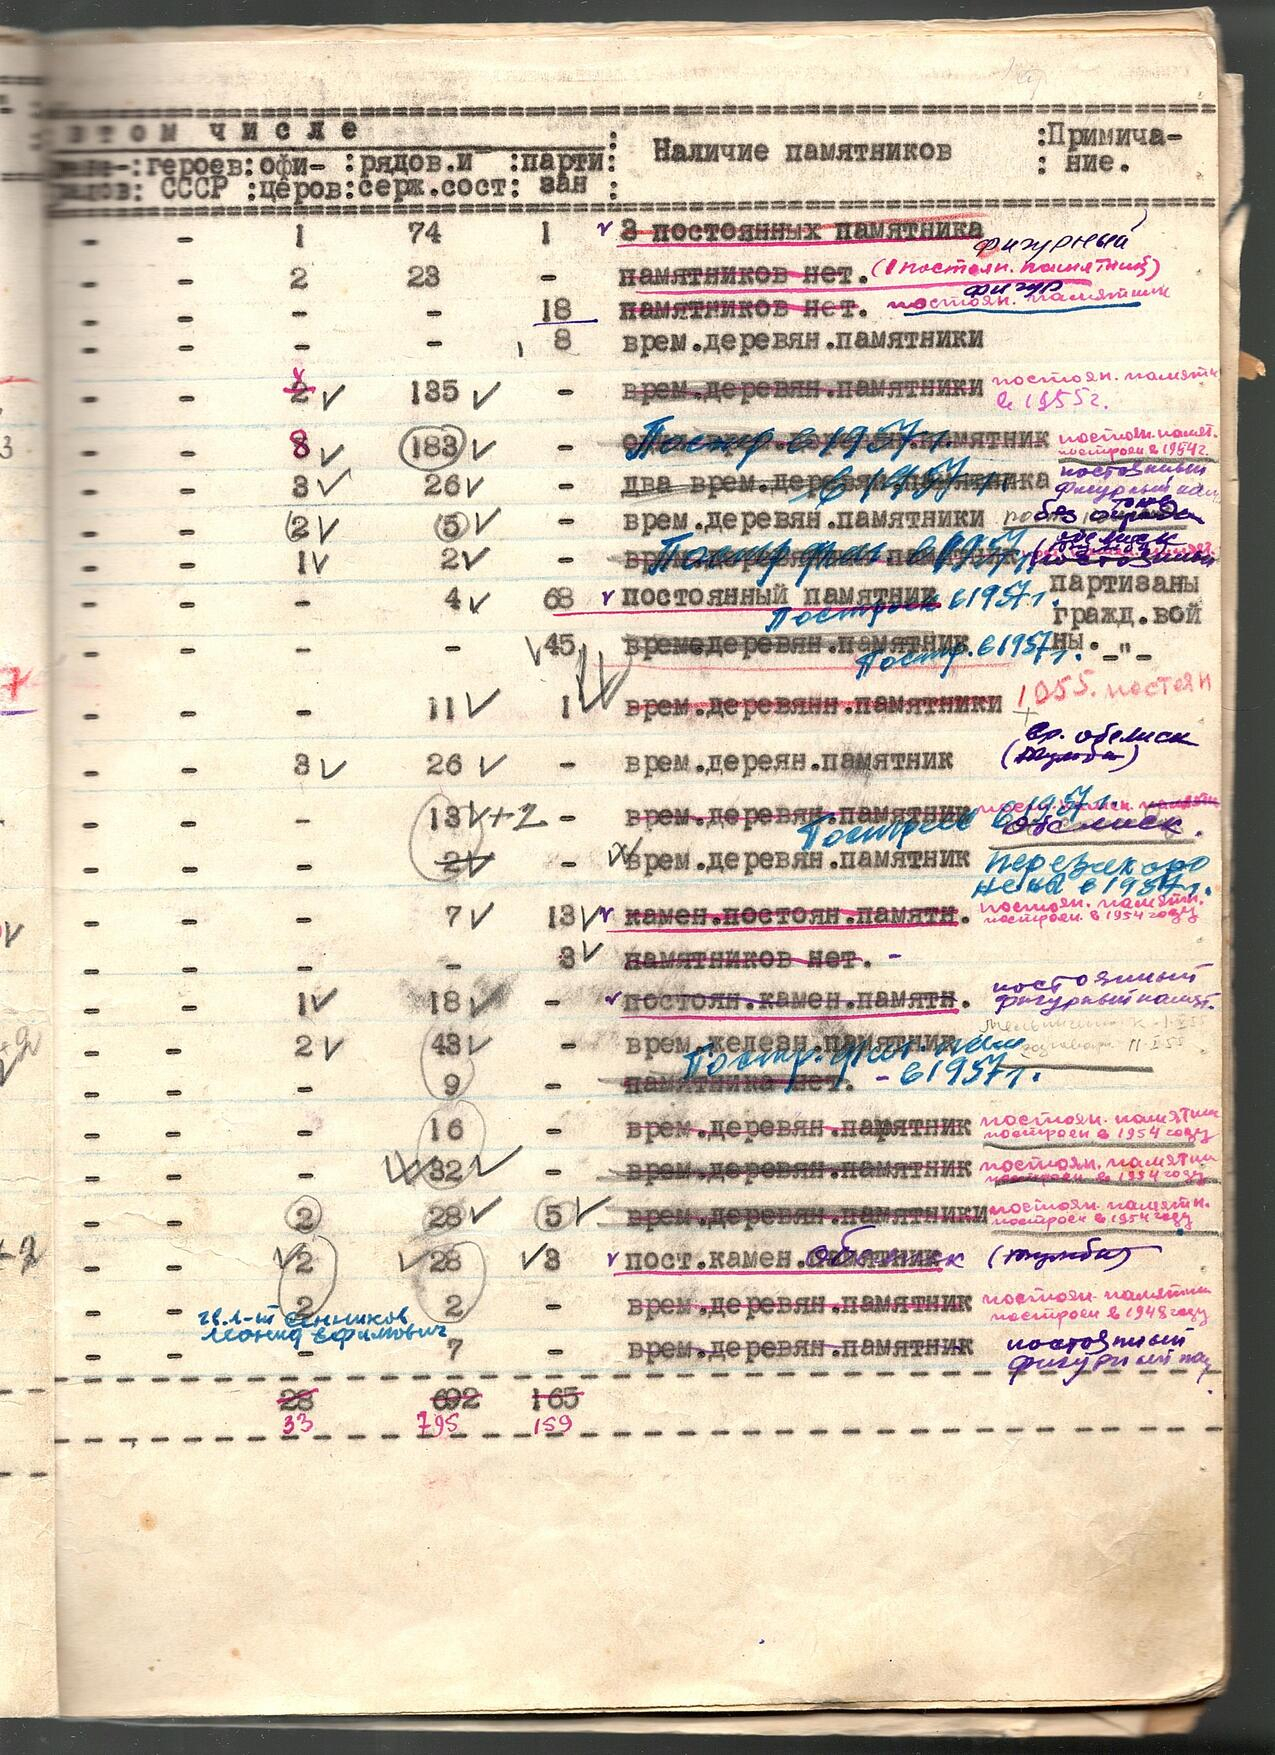 в том числе
:героев:офи- :рядов.и :парти: Наличие памятников :Примича-
: СССР :церов:серж.сост: зан : : ние.
- - 1 74 1 v 3 постоянных памятника
фигурный
- - 2 23 - памятников нет. (1 постоян. памятник)
фигур
- - - - 18 памятников нет. постоян. памятник
- - - - 8 врем.деревян.памятники
- - 2 135 - врем.деревян.памятники постоян. памятн
в 1955г.
- - 8 183 - памятник постоян. памят.
Постр в 1957г. построен в 1954г.
- - 3 26 - два врем.деревян.памятника постоянный
в 1957г. фигурный
- - 2 5 - врем.деревян.памятники без
- - 1 2 - памятник обелиск
Постр в 1957г.
- - - 4 68 v постоянный памятник партизаны
Построен в 1957г. гражд.вой
- - - - 45 времедеревян.памятник ны. -"-
Постр. в 1957г.
- - - 11 1 врем.деревянн.памятники 1955. постоян
- - 3 26 - врем.дереян.памятник вр. обелиск
(тумба)
- - - 13 +2 - врем.деревян.памятник
Построен в 1957г. обелиск.
- - - 2 - врем.деревян.памятник перезахоро
нены в 1957г.
- - - 7 13 v камен.постоян.памятн. постоян. памятн.
построен в 1954 году
- - - - 3 памятников нет. -
- - 1 18 - v постоян.камен.памятн. постоянный
фигурный памят.
- - 2 43 - врем.железн.памятник
Постр. фиг. пам
- - - 9 - памятника нет. - в 1957г.
- - - 16 - врем.деревян.памятник постоян. памятник
построен в 1954 году
- - - 32 - врем.деревян.памятник постоян. памятн
построен в 1954 году
- - 2 28 5 врем.деревян.памятники постоян. памятн.
построен в 1954 году
- - 2 28 3 v пост.камен.памятник обелиск (тумба)
- - 2 2 - врем.деревян.памятник постоян. памятник
построен в 1948 году
гв. л-т Сенников
Леонид Ефимович
- - - 7 - врем.деревян.памятник постоянный
фигурный
28 692 165
33 795 159